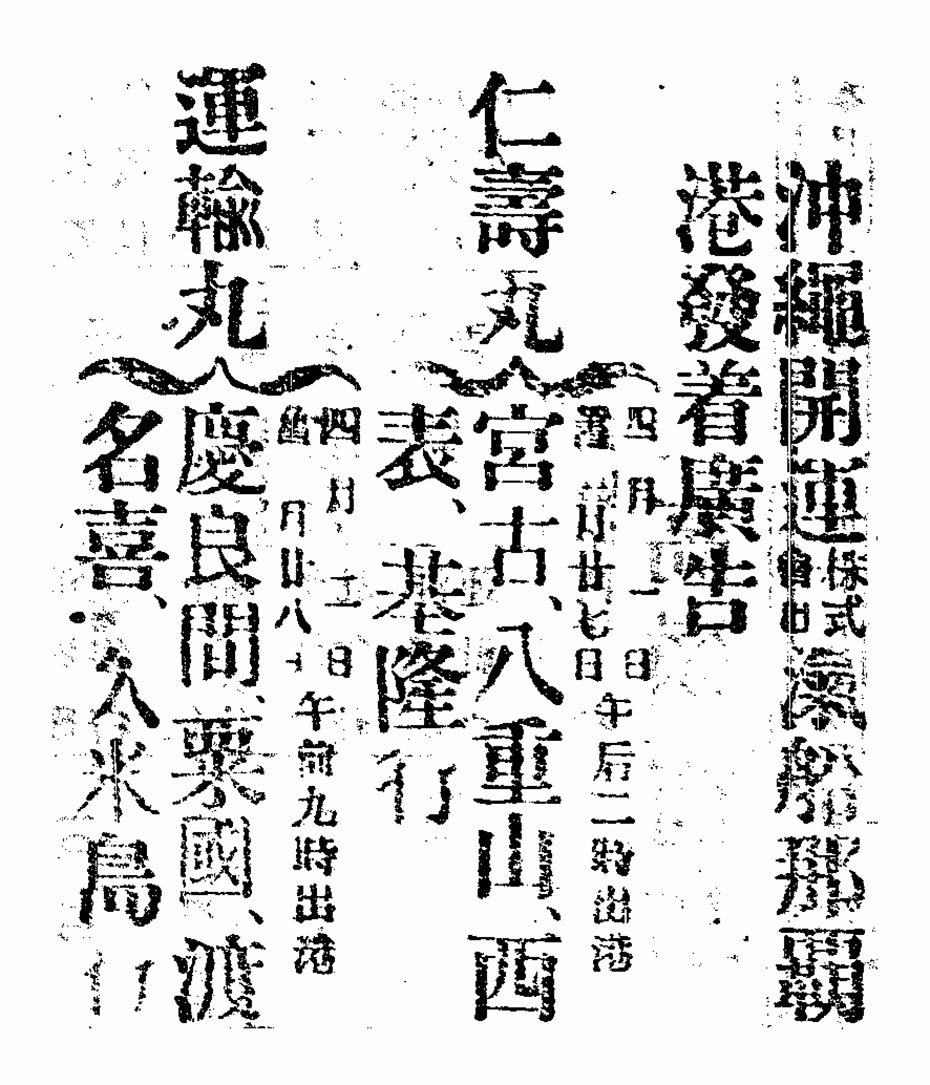 沖繩開運株式會社滊船
港發着廣告
仁壽丸
四月一日
舊廿七日
午后二時出港
宮古、八重山、西
表、基隆行
運輸丸
四月二日
舊月廿八
午前九時出港
慶良間、粟國、渡
名喜、久米島行